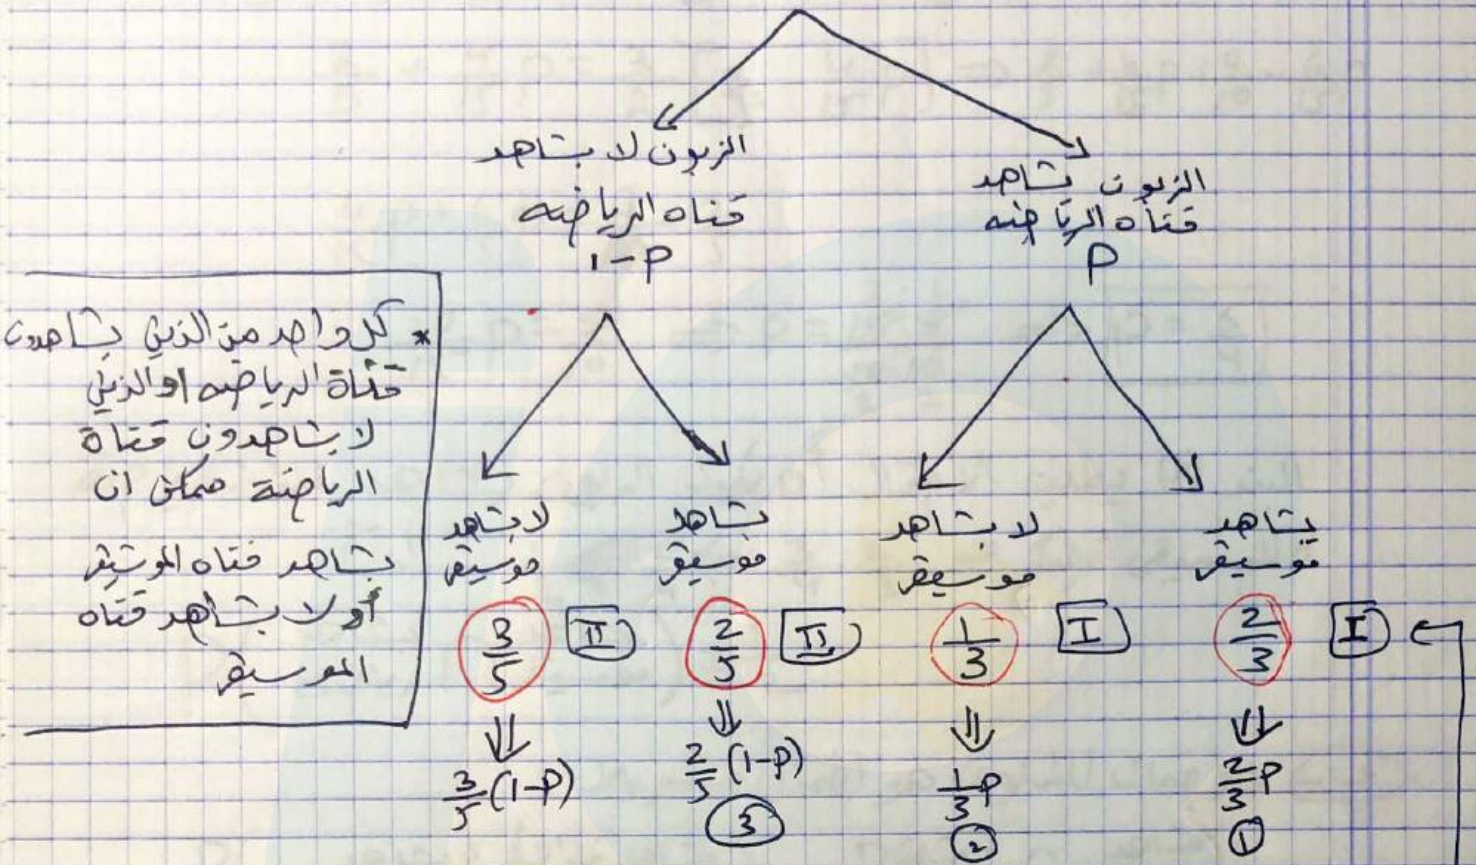 الزبون يشاهد
قناه الرياضه
P
الزبون لا يشاهد
قناه الرياضه
1-P
* كل واحد من الذين يشاهدون
قناة الرياضه او الذين
لا يشاهدون قناة
الرياضة ممكن ان
يشاهد قناه الموسيقى
أو لا يشاهد قناه
الموسيقى
يشاهد
موسيقى
2/3 I
2/3 P
1
لا يشاهد
موسيقى
1/3 I
1/3 P
2
يشاهد
موسيقى
2/5 II
2/5 (1-P)
3
لا يشاهد
موسيقى
3/5 II
3/5 (1-P)